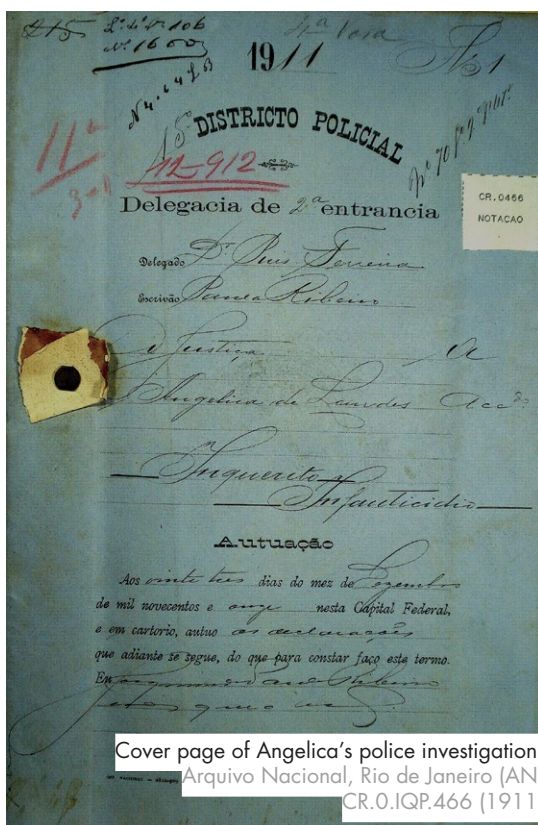 215 L.º
Nº 1600
4ª Vara
Nº 1
1911
15º DISTRICTO POLICIAL
11ª
3-1
12-912
CR.0466
NOTACAO
Delegacia de 2ª entrancia
Delegado Dr. Ferreira
Escrivão Ribeiro
A Justiça A
Angelica de Lourdes Accda
Inquerito
Infanticidio
Autuação
Aos vinte tres dias do mez de Dezembro
de mil novecentos e onze nesta Capital Federal,
e em cartorio, autuo as declarações
que adiante se segue, do que para constar faço este termo.
Eu Ribeiro
que
Cover page of Angelica's police investigation
Arquivo Nacional, Rio de Janeiro (AN
CR.0.IQP.466 (1911